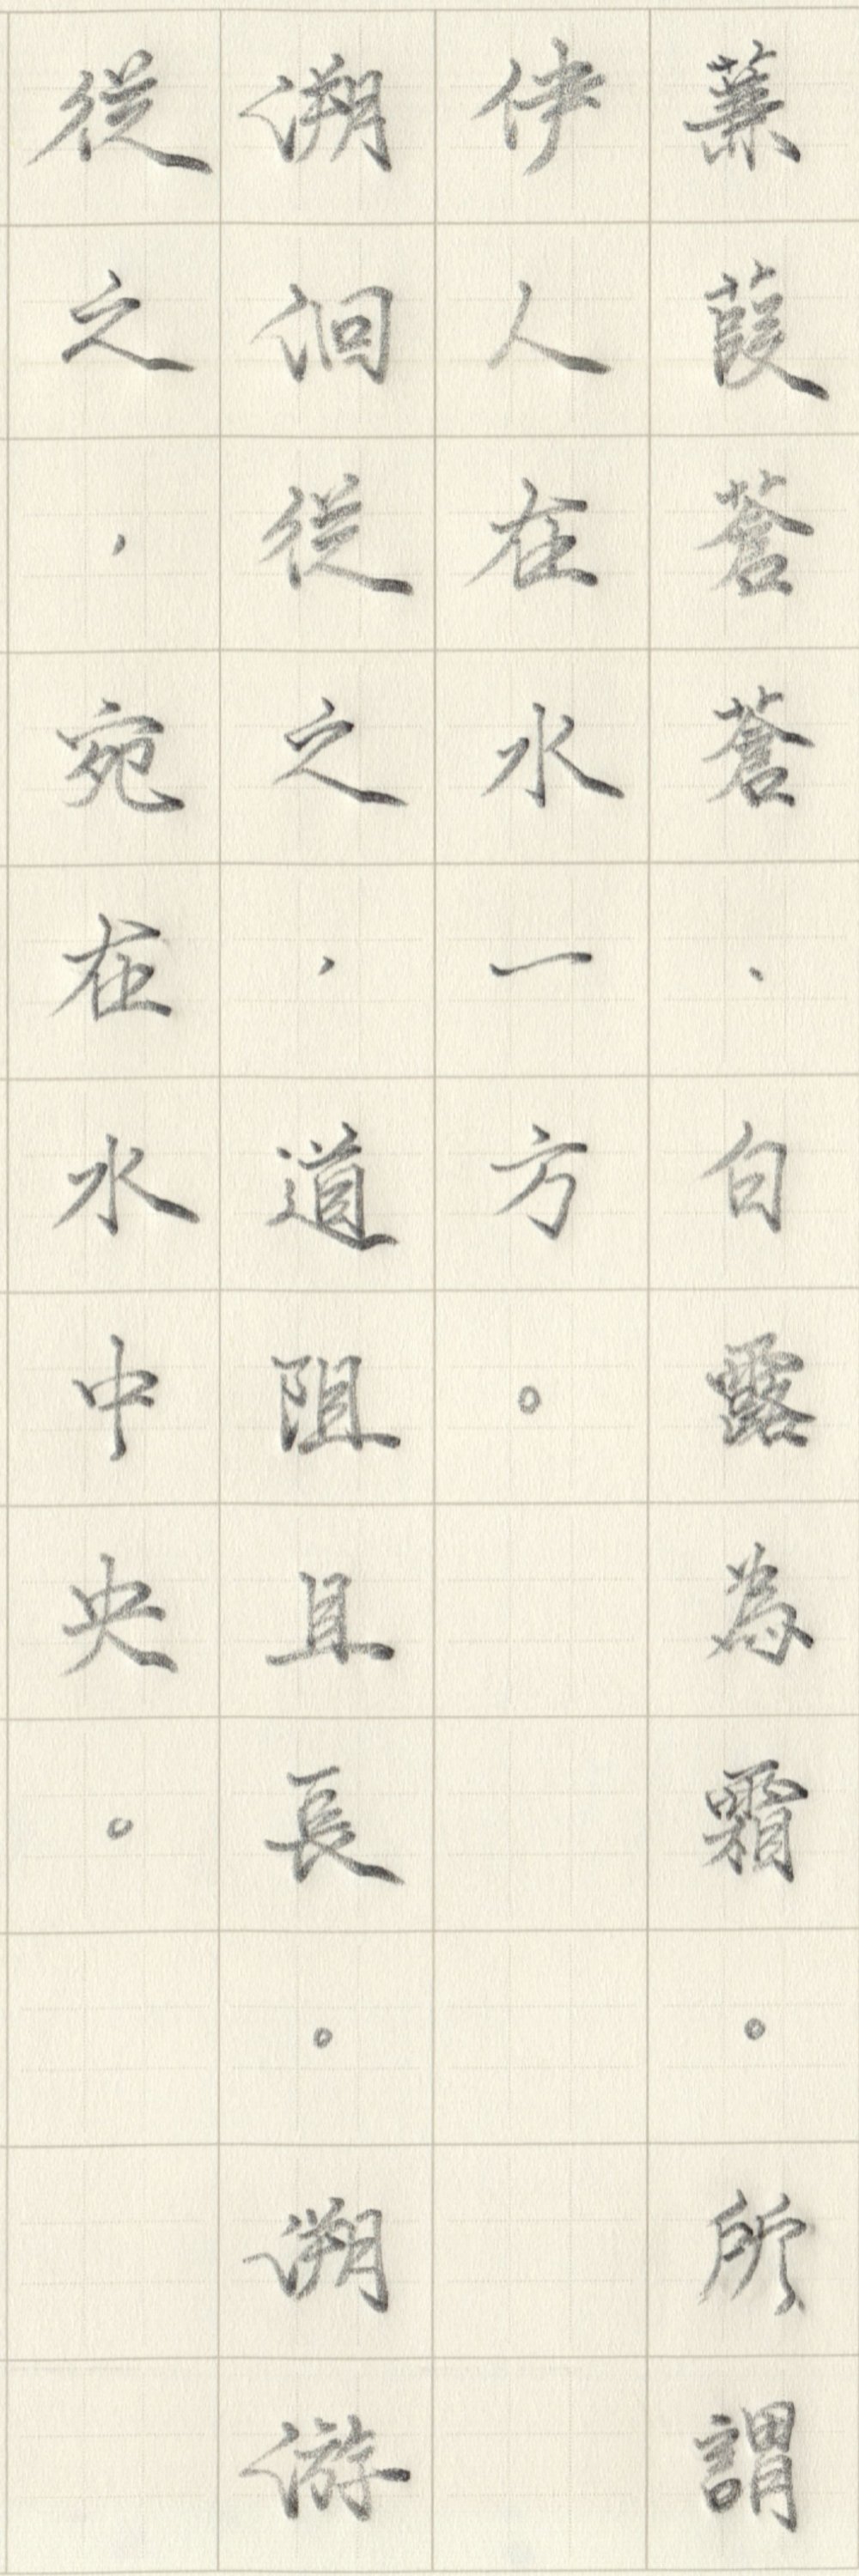 蒹葭蒼蒼，白露為霜。所謂
伊人在水一方。
溯洄從之，道阻且長。溯游
從之，宛在水中央。